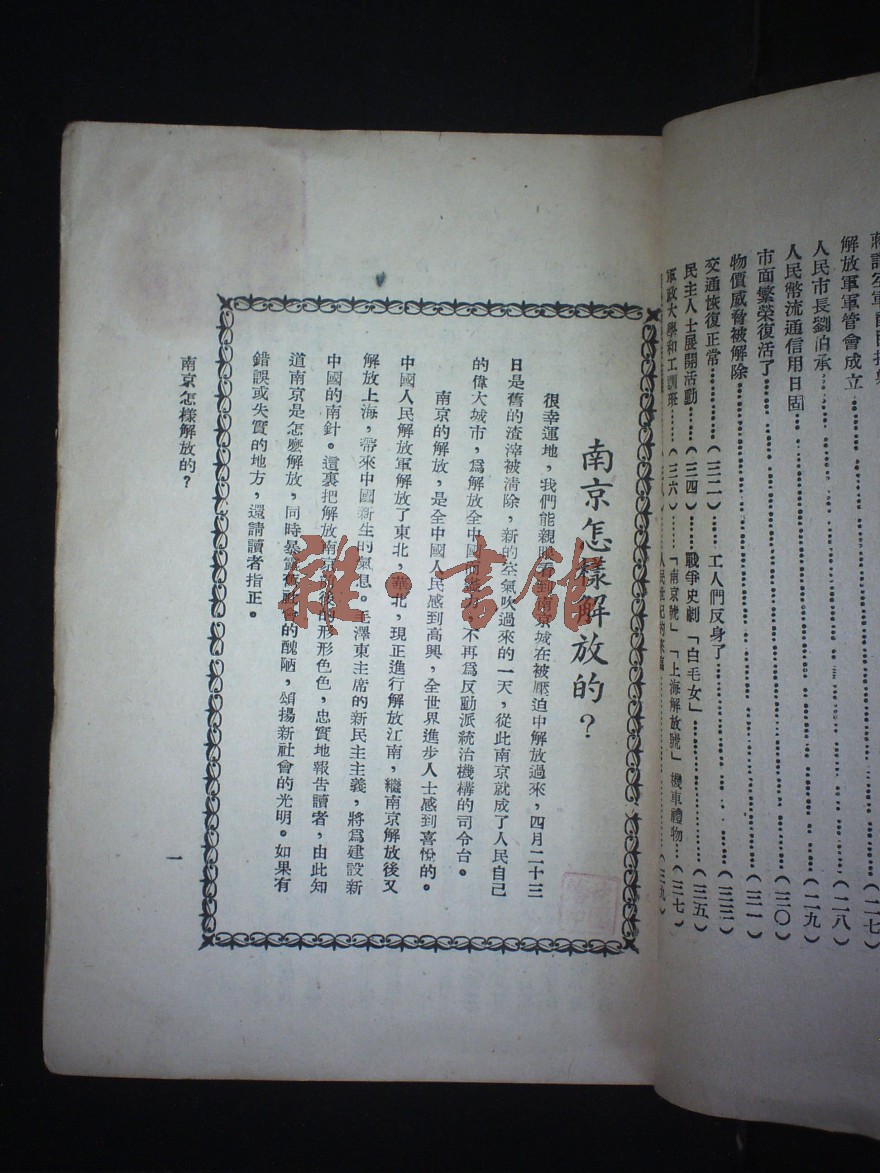 解放軍軍管會成立……(二七)
人民市長劉伯承……(二八)
人民幣流通信用日固……(二九)
市面繁榮復活了……(三〇)
物價威脅被解除……(三一)
交通恢復正常……(三二) 工人們反身了……(三三)
民主人士展開活動……(三四) 戰爭史劇「白毛女」……(三五)
軍政大學和工訓班……(三六) 「南京號」「上海解放號」機車禮物…(三七)
南京怎樣解放的?
很幸運地,我們能親眼看到南京城在被壓迫中解放過來,四月二十三
日是舊的渣滓被清除,新的空氣吹過來的一天,從此南京就成了人民自己
的偉大城市,爲解放全中國而盡力,不再爲反動派統治機構的司令台。
南京的解放,是全中國人民感到高興,全世界進步人士感到喜悅的。
中國人民解放軍解放了東北,華北,現正進行解放江南,繼南京解放後又
解放上海,帶來中國新生的氣息。毛澤東主席的新民主主義,將爲建設新
中國的南針。這裏把解放南京前後的形形色色,忠實地報告讀者,由此知
道南京是怎麽解放,同時暴露舊社會的醜陋,頌揚新社會的光明。如果有
錯誤或失實的地方,還請讀者指正。
南京怎樣解放的?
一
雜·書館